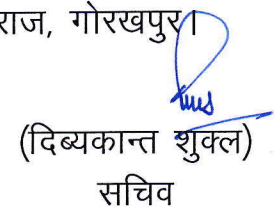 राज, गोरखपुर।
(दिब्यकान्त शुक्ल)
सचिव